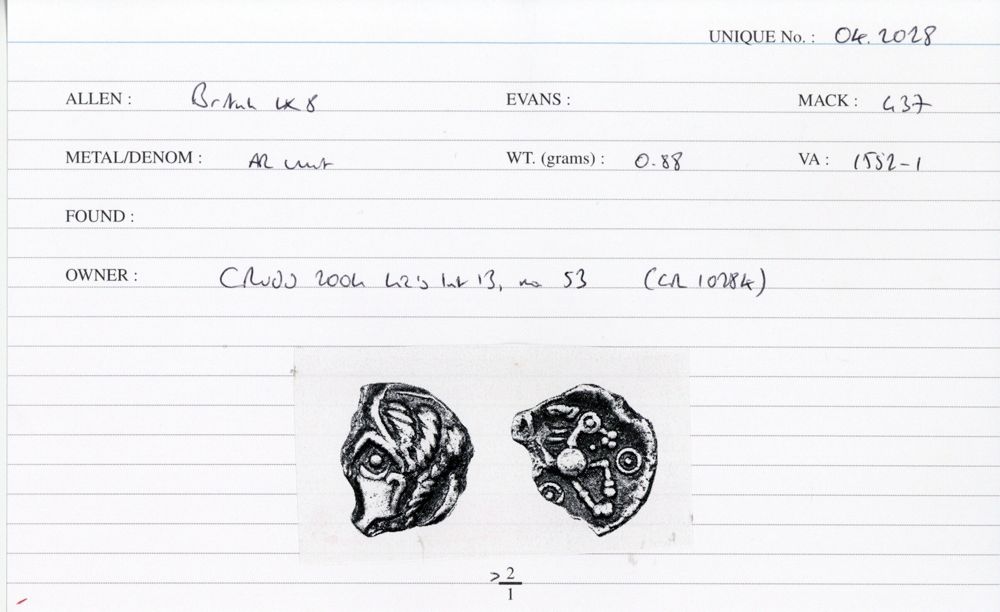 UNIQUE No. : 04.2028
ALLEN : British LX 8 EVANS : MACK : 437
METAL/DENOM : AR unit WT. (grams) : 0.88 VA : 1552-1
FOUND :
OWNER : 2004 list 13, no 53 (CR 10284)
> 2
1